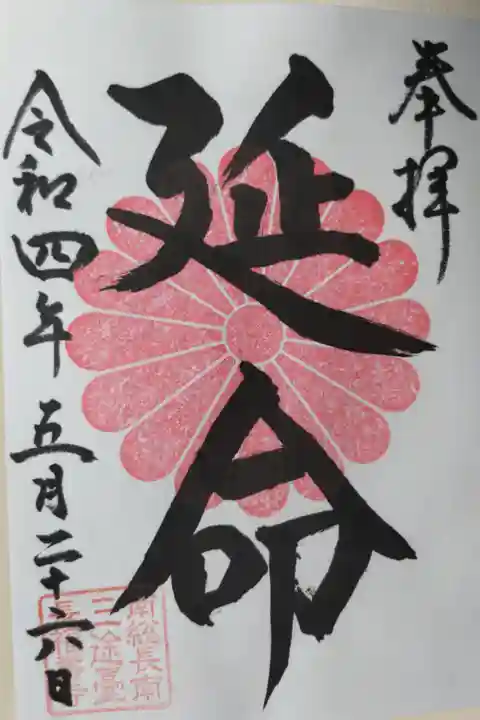 奉拝
延命
令和四年五月二十六日
南総長南
三途臺
長福壽寺